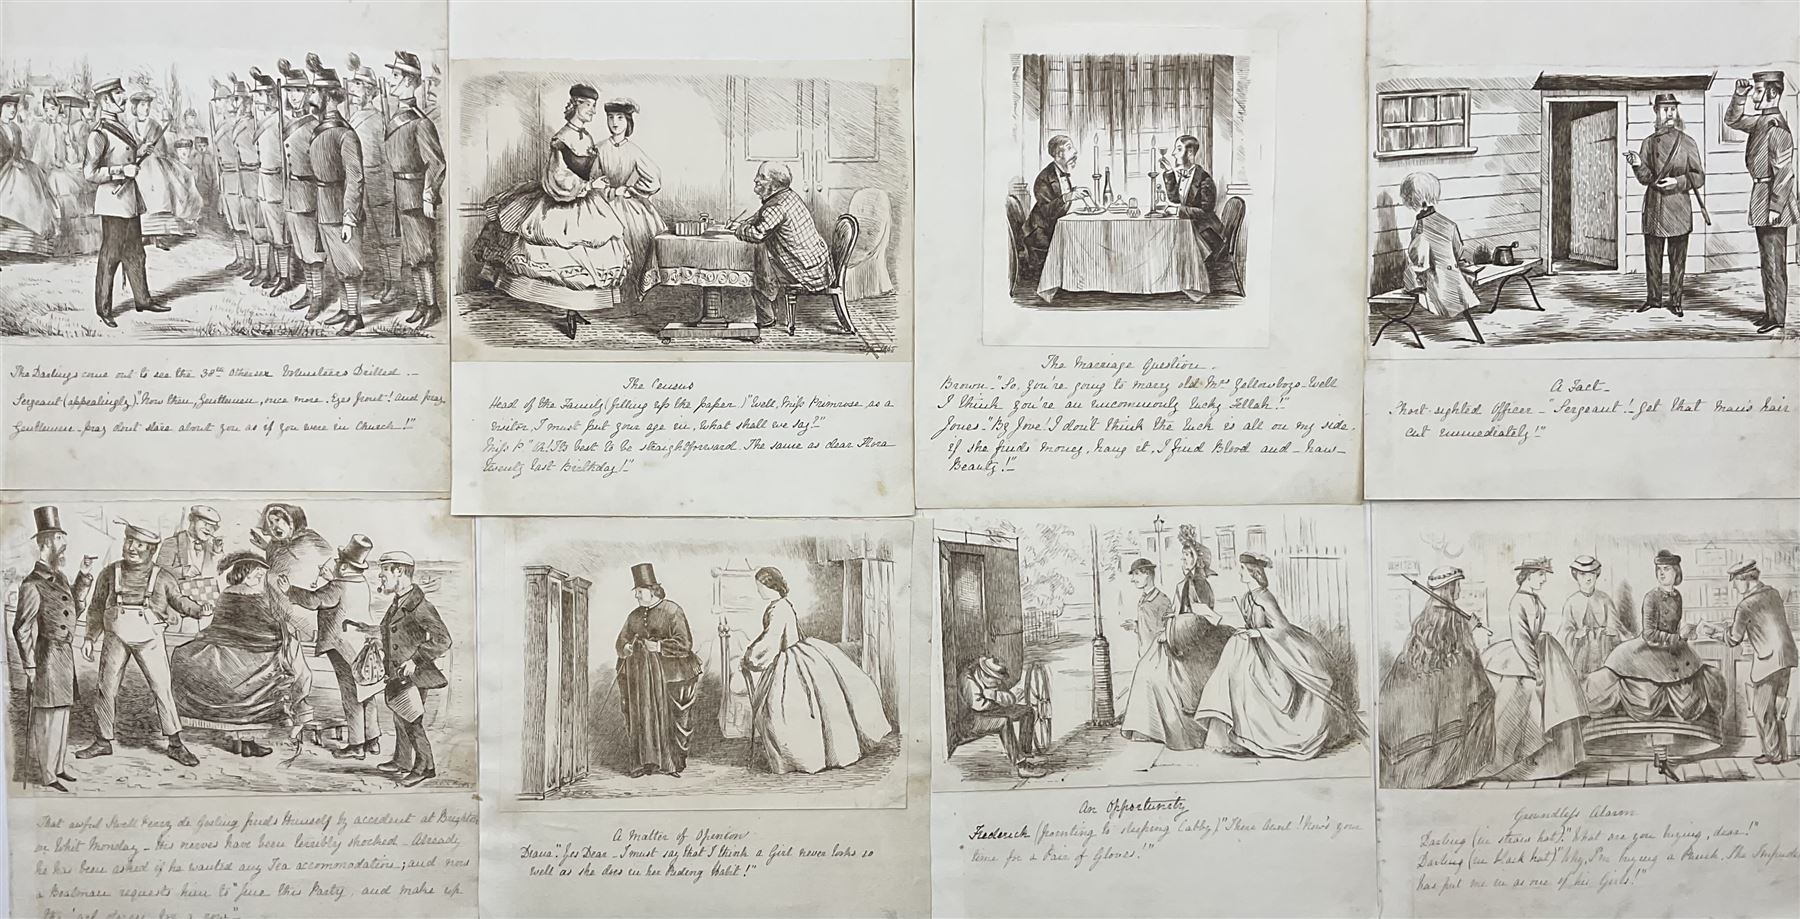 The Darlings come out to see the 38th Othersex Volunteers Drilled.—
Sergeant (appealingly) "Now then, Gentlemen, once more. Eyes front! And pray
Gentlemen—pray don't stare about you as if you were in Church!"
The Census
Head of the Family (filling up the paper) "Well, Miss Primrose, as a
visitor, I must put your age in, What shall we say?"
Miss P. "Oh! Its best to be straightforward. The same as dear Flora
Twenty last Birthday!"
The Marriage Question.
Brown—"So, you're going to marry old Mrs Yellowboys—Well
I think you're an uncommonly lucky Fellah!"
Jones—"By Jove! I don't think the luck is all on my side.
if she finds money, hang it, I find Blood and—haw—
Beauty!"
A Fact—
Short sighted Officer—"Sergeant!—get that man's hair
cut immediately!"
That awful Swell Percy de Gosling finds Himself by accident at Brighton
on Whit Monday—His nerves have been terribly shocked—Already
he has been asked if he wanted any Tea accommodation; and now
a Boatman requests him to "jine this Party, and make up
for a row"—
A Matter of Opinion
Diana. "Yes Dear—I must say that I think a Girl never looks so
well as she does in her Riding Habit!"
An Opportunity
Frederick (pointing to sleeping Cabby) "There Aunt! Now's your
time for a Pair of Gloves!"
WHITBY
Groundless Alarm
Darling (in straw hat) "What are you buying, dear!"
Darling (in black hat) "Why, I'm buying a Punch. The Impudence
has put me in as one of his Girls!"